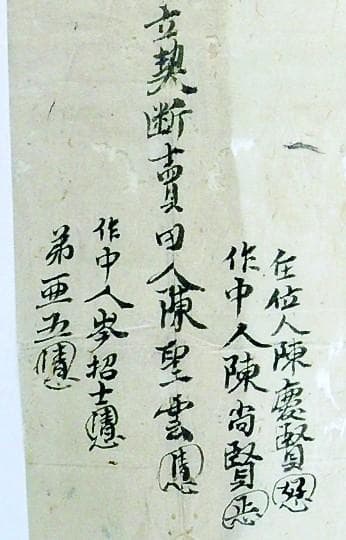 在位人陳慶賢
作中人陳尚賢
立契断賣田人陳聖雲
作中人岑招士
弟亜五